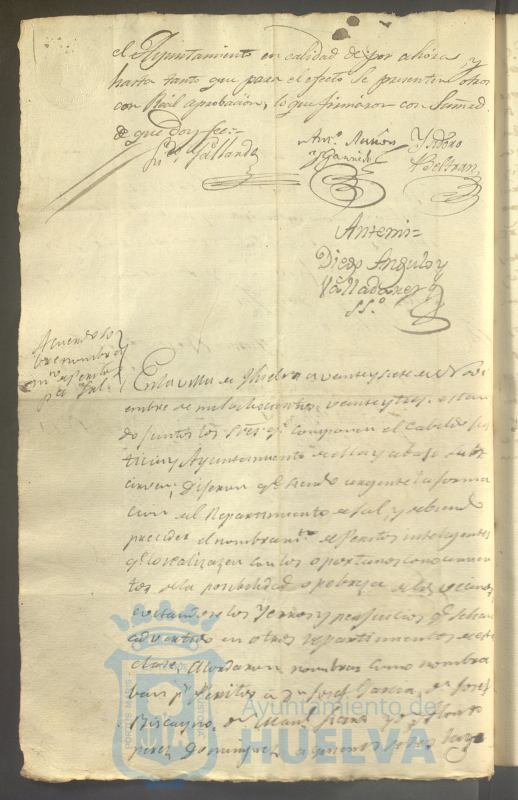 el Ayuntamiento en calidad de por ahora, y
hasta tanto que para el efecto se presenten otros
con Real aprobacion, lo que firmaron con Sumd.
de que Doy fee=
Gallardo
Antº. Muñoz
Ysidoro
Beltran
Antemi=
Diego Angulo y
Valladares
SSº.
Acuerdo
nombran
peritos
pª. Sal.
En la villa de Huelva a veinte y siete de Novi
embre de mil ochocientos veinte y tres: estan
do juntos los Sres. qe. componen el Cabildo Jus
ticia y Ayuntamiento de ella y abajo subs
criven; Dijeron qe. siendo urgente la forma
cion del Repartimiento de Sal, y debiendo
preceder el nombramto. de Peritos inteligentes
qe. lo realizen con los oportunos conocimien
tos de la posibilidad o pobreza de los vecinos
evitandose los Yerros y perjuicios qe. se han
advertido en otros repartimientos de esta
clase; Acordaron nombrar como nombra
ban pr. Peritos à Dn. Josef Garcia, Dn. Josef
Biscayno, Dn. Manl.
Perez Dominguez a quienes se les haga
PORTUS MARIS
CUSTODIA
Ayuntamiento de
HUELVA